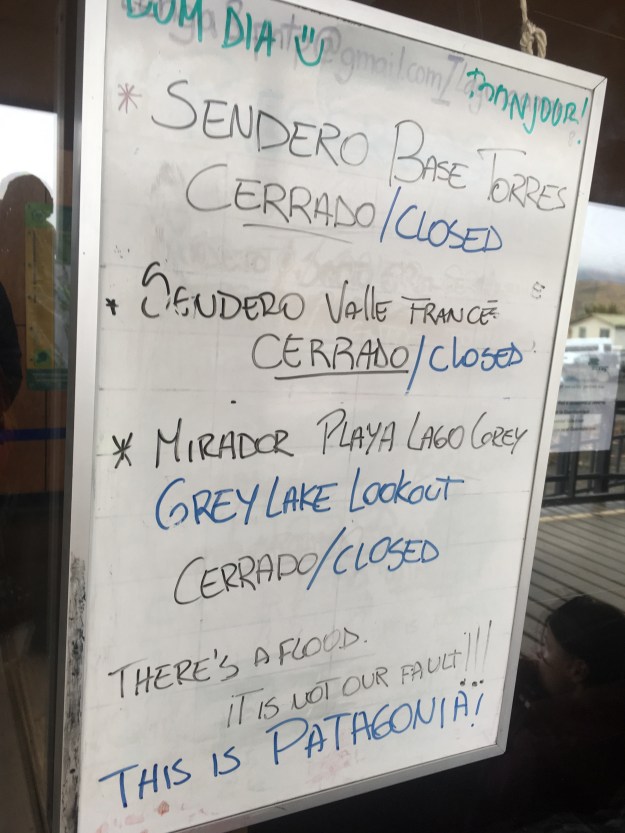 BOM DIA
BONJOUR!
* SENDERO BASE TORRES
CERRADO/CLOSED
* SENDERO Valle FRANCÉS
CERRADO/CLOSED
* MIRADOR PLAYA LAGO GREY
GREY LAKE LOOKOUT
CERRADO/CLOSED
THERE'S A FLOOD.
IT IS NOT OUR FAULT!!!
THIS IS PATAGONIA!